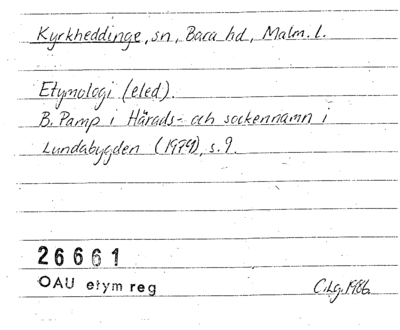 Kyrkheddinge, sn, Bara hd, Malm. l.
Etymologi (eled).
B. Pamp i Härads- och sockennamn i
Lundabygden (1979), s. 9.
26661
OAU etym reg
C.Lg. 1986